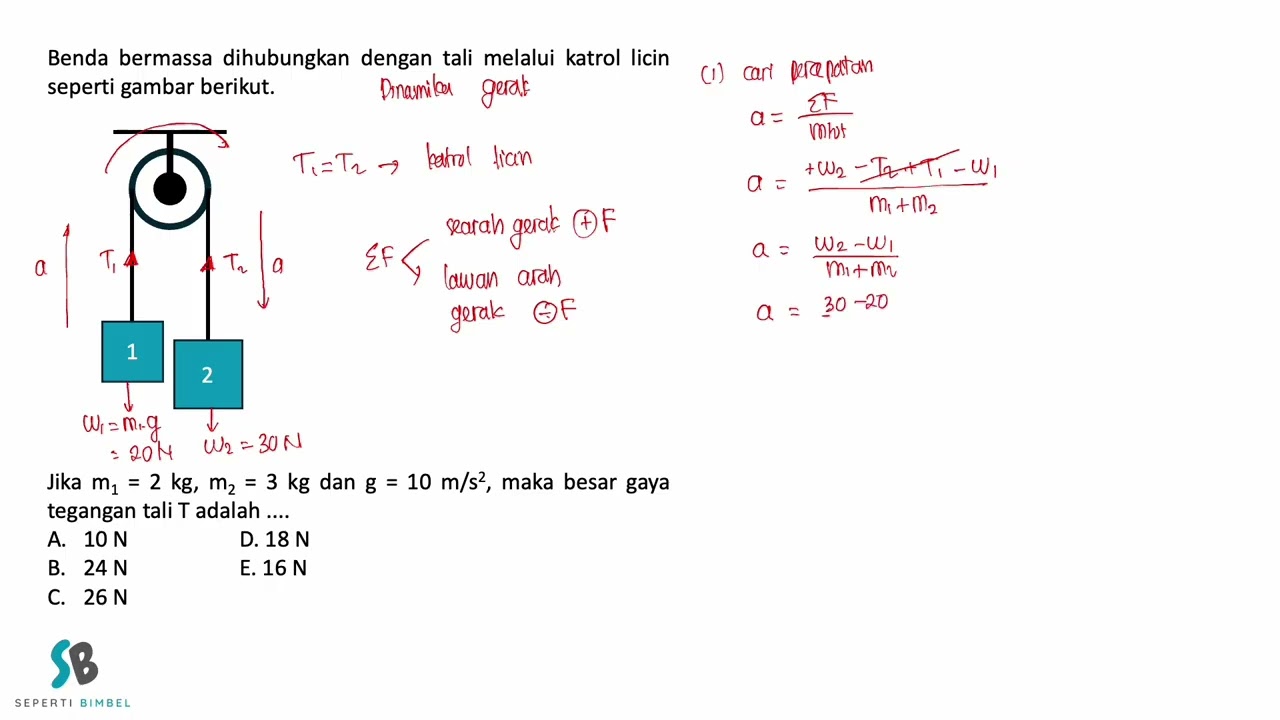 Benda bermassa dihubungkan dengan tali melalui katrol licin
seperti gambar berikut.
Dinamika gerak
T₁ = T₂ → katrol licin
a
T₁
T₂
a
ΣF
searah gerak ⊕ F
lawan arah
gerak ⊖ F
1
2
w₁ = m₁g
= 20 N
w₂ = 30 N
Jika m₁ = 2 kg, m₂ = 3 kg dan g = 10 m/s², maka besar gaya
tegangan tali T adalah ....
A. 10 N
D. 18 N
B. 24 N
E. 16 N
C. 26 N
SB
SEPERTI BIMBEL
(1) cari percepatan
a = ΣF
mtot
a = +w₂ - T₂ + T₁ - w₁
m₁ + m₂
a = w₂ - w₁
m₁ + m₂
a = 30 - 20